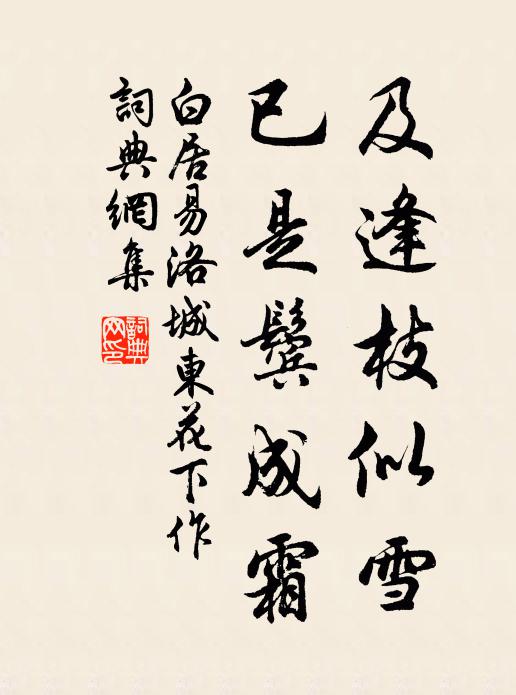 及逢枝似雪
已是鬓成霜
白居易洛城東花下作
詞典網集
詞典網印